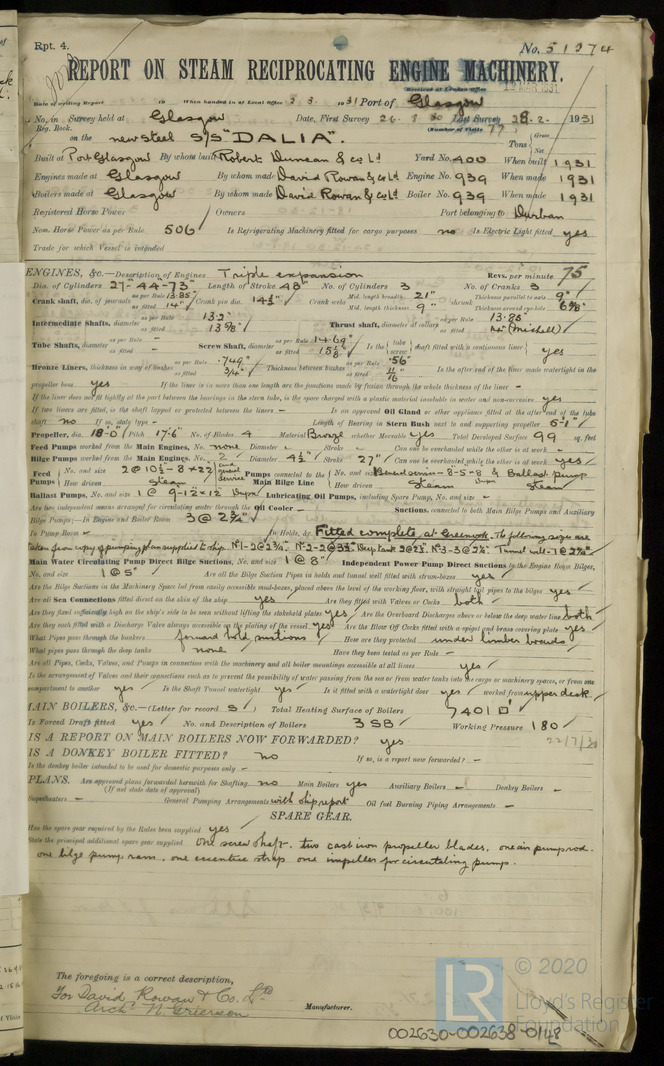 Rpt. 4.
No. 51074
REPORT ON STEAM RECIPROCATING ENGINE MACHINERY.
Received at London Office
Date of writing Report 19 When handed in at Local Office 2 3. 1931 Port of Glasgow
No. in Survey held at Glasgow Date, First Survey 26. 30 Last Survey 28. 2. 1931
Reg. Book. (Number of Visits 77)
on the new steel S/S "DALIA". Tons Gross Net
Built at Port Glasgow By whom built Robert Duncan & Co Ld Yard No. 400 When built 1931
Engines made at Glasgow By whom made David Rowan & Co Ld Engine No. 939 When made 1931
Boilers made at Glasgow By whom made David Rowan & Co Ld Boiler No. 939 When made 1931
Registered Horse Power Owners Port belonging to Durban
Nom. Horse Power as per Rule 506 Is Refrigerating Machinery fitted for cargo purposes no Is Electric Light fitted yes
Trade for which Vessel is intended
ENGINES, &c.—Description of Engines Triple expansion Revs. per minute 75
Dia. of Cylinders 27"-44-73" Length of Stroke 48" No. of Cylinders 3 No. of Cranks 3
Crank shaft, dia. of journals as per Rule 13.85" as fitted 14" Crank pin dia. 14½" Crank webs Mid. length breadth 21" Mid. length thickness 9" shrunk Thickness parallel to axis 9" Thickness around eye-hole 6⅝"
Intermediate Shafts, diameter as per Rule 13.2" as fitted 13⅝" Thrust shaft, diameter at collars as per Rule 13.85" as fitted (Michell)
Tube Shafts, diameter as per Rule - as fitted - Screw Shaft, diameter as per Rule 14.69" as fitted 15⅛" Is the tube screw shaft fitted with a continuous liner yes
Bronze Liners, thickness in way of bushes as per Rule .749" as fitted ¾" Thickness between bushes as per Rule .56" as fitted 11/16" Is the after end of the liner made watertight in the
propeller boss yes If the liner is in more than one length are the junctions made by fusion through the whole thickness of the liner -
If the liner does not fit tightly at the part between the bearings in the stern tube, is the space charged with a plastic material insoluble in water and non-corrosive yes
If two liners are fitted, is the shaft lapped or protected between the liners - Is an approved Oil Gland or other appliance fitted at the after end of the tube
shaft no If so, state type - Length of Bearing in Stern Bush next to and supporting propeller 5'-1"
Propeller, dia. 18'-0" Pitch 17'-6" No. of Blades 4 Material Bronze whether Moveable yes Total Developed Surface 99 sq. feet
Feed Pumps worked from the Main Engines, No. none Diameter - Stroke - Can one be overhauled while the other is at work -
Bilge Pumps worked from the Main Engines, No. 2 Diameter 4½" Stroke 27" Can one be overhauled while the other is at work yes
Feed Pumps No. and size 2 @ 10½-8 x 22 How driven Steam Pumps connected to the Main Bilge Line No. and size & Ballast pump How driven Steam Steam
Ballast Pumps, No. and size 1 @ 9-12x12" Duplex Lubricating Oil Pumps, including Spare Pump, No. and size -
Are two independent means arranged for circulating water through the Oil Cooler - Suctions, connected to both Main Bilge Pumps and Auxiliary
Bilge Pumps;—In Engine and Boiler Room 3 @ 2¾"
In Pump Room - In Holds, &c. Fitted complete, at Greenock. The following sizes are
taken from copy of pumping plan supplied to ship. Nº1-2@2¾". Nº2-2@3½". Deep tank 2@2½". Nº3-3@2½". Tunnel well-1@2½".
Main Water Circulating Pump Direct Bilge Suctions, No. and size 1 @ 8" Independent Power Pump Direct Suctions to the Engine Room Bilges,
No. and size 1 @ 5" Are all the Bilge Suction Pipes in holds and tunnel well fitted with strum-boxes yes
Are the Bilge Suctions in the Machinery Space led from easily accessible mud-boxes, placed above the level of the working floor, with straight tail pipes to the bilges yes
Are all Sea Connections fitted direct on the skin of the ship yes Are they fitted with Valves or Cocks both
Are they fixed sufficiently high on the ship's side to be seen without lifting the stokehold plates yes Are the Overboard Discharges above or below the deep water line both
Are they each fitted with a Discharge Valve always accessible on the plating of the vessel yes Are the Blow Off Cocks fitted with a spigot and brass covering plate yes
What Pipes pass through the bunkers forward hold suctions How are they protected under limber boards
What pipes pass through the deep tanks none Have they been tested as per Rule -
Are all Pipes, Cocks, Valves, and Pumps in connection with the machinery and all boiler mountings accessible at all times yes
Is the arrangement of Valves and their connections such as to prevent the possibility of water passing from the sea or from water tanks into the cargo or machinery spaces, or from one
compartment to another yes Is the Shaft Tunnel watertight yes Is it fitted with a watertight door yes worked from upper deck
MAIN BOILERS, &c.—(Letter for record S) Total Heating Surface of Boilers 7401 □'
Is Forced Draft fitted yes No. and Description of Boilers 3 SB Working Pressure 180
IS A REPORT ON MAIN BOILERS NOW FORWARDED? yes
22/7/30
IS A DONKEY BOILER FITTED? no If so, is a report now forwarded? -
Is the donkey boiler intended to be used for domestic purposes only -
PLANS. Are approved plans forwarded herewith for Shafting no Main Boilers yes Auxiliary Boilers - Donkey Boilers -
(If not state date of approval)
Superheaters - General Pumping Arrangements with ship report Oil fuel Burning Piping Arrangements -
SPARE GEAR.
Has the spare gear required by the Rules been supplied yes
State the principal additional spare gear supplied One screw shaft. two cast iron propeller blades. one air pump rod.
one bilge pump ram. one eccentric strap one impeller for circulating pump.
The foregoing is a correct description,
For David Rowan & Co. Ltd
Archd N. Grierson
Manufacturer.
LR
© 2020
Lloyd's Register
Foundation
002630-002638-0148